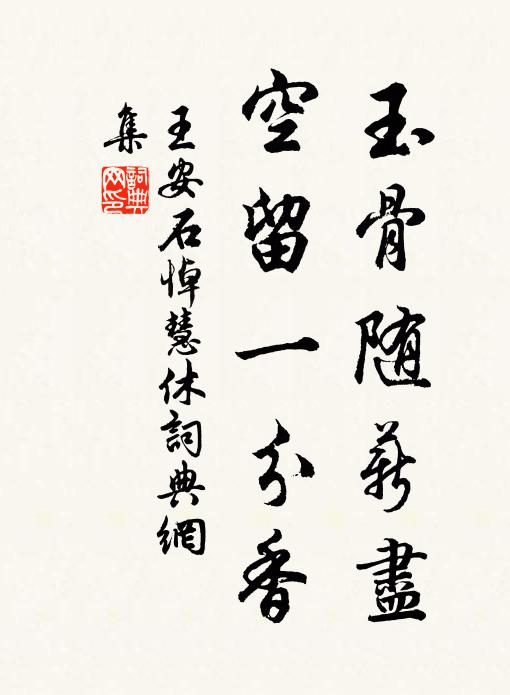 玉骨随薪盡
空留一分香
王安石悼慧休詞典網
集
詞典
网印